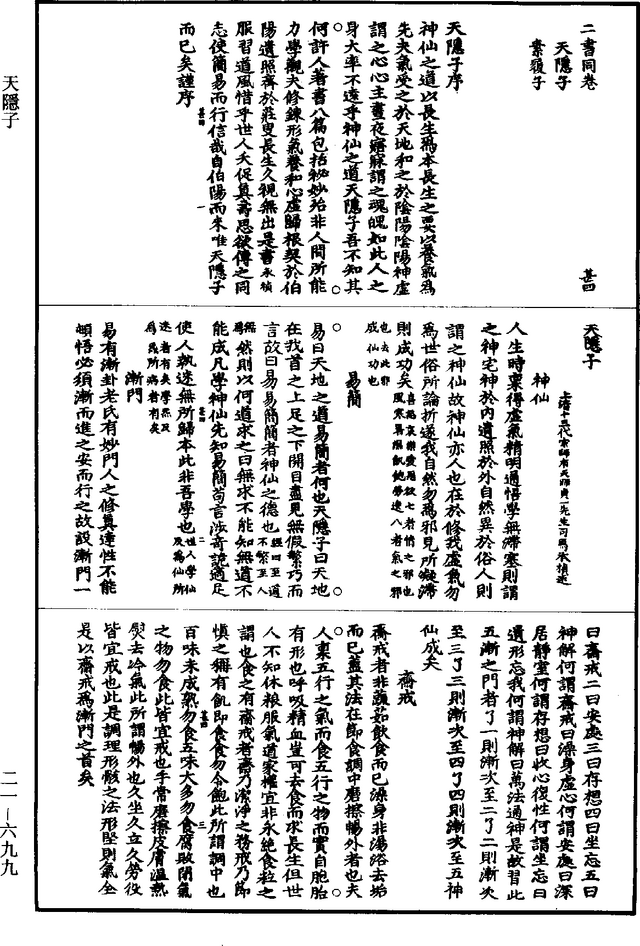 二書同卷
天隱子
素履子
甚四
天隱子序
神仙之道以長生爲本長生之要以養氣爲
先夫氣受之於天地和之於陰陽陰陽神虛
謂之心心主晝夜寤寐謂之魂魄如此人之
身大率不遠乎神仙之道天隱子吾不知其
何許人著書八篇包括秘妙殆非人間所能
力學觀夫修鍊形氣養和心虛歸根契於伯
陽遺照齊於莊叟長生久視無出是書承禎
服習道風惜乎世人夭促眞壽思欲傳之同
志使簡易而行信哉自伯陽而來唯天隱子
而已矣謹序
天隱子
上清十三代宗師有天師貞一先生司馬承禎述
神仙
人生時稟得虛氣精明通悟學無滯塞則謂
之神宅神於內遺照於外自然異於俗人則
謂之神仙故神仙亦人也在於修我虛氣勿
爲世俗所論折遂我自然勿爲邪見所凝滯
則成功矣喜怒哀樂愛惡欲七者情之邪也風寒暑濕飢飽勞逸八者氣之邪
也去此邪成仙功也
易簡
易曰天地之道易簡者何也天隱子曰天地
在我首之上足之下開目盡見無假繁巧而
言故曰易簡易簡者神仙之德也經曰至道不繁至人
無爲然則以何道求之曰無求不能知無道不
能成凡學神仙先知易簡苟言涉奇詭適足
使人執迷無所歸本此非吾學也世人學仙反爲仙所
迷者有矣學氣反爲氣所病者有矣
漸門
易有漸卦老氏有妙門人之修眞達性不能
頓悟必須漸而進之安而行之故設漸門一
曰齋戒二曰安處三曰存想四曰坐忘五曰
神解何謂齋戒曰澡身虛心何謂安處曰深
居靜室何謂存想曰收心復性何謂坐忘曰
遺形忘我何謂神解曰萬法通神是故習此
五漸之門者了一則漸次至二了二則漸次
至三了三則漸次至四了四則漸次至五神
仙成矣
齋戒
齋戒者非蔬茹飲食而已澡身非湯浴去垢
而已蓋其法在節食調中磨擦暢外者也夫
人稟五行之氣而食五行之物而實自胞胎
有形也呼吸精血豈可去食而求長生但世
人不知休粮服氣道家權宜非永絕食粒之
謂也食之有齋戒者齋乃潔淨之務戒乃節
慎之稱有飢即食食勿令飽此所謂調中也
百味未成熟勿食五味太多勿食腐敗閉氣
之物勿食此皆宜戒也手常磨擦皮膚溫熱
熨去冷氣此所謂暢外也久坐久立久勞役
皆宜戒也此是調理形骸之法形堅則氣全
是以齋戒爲漸門之首矣
天隱子
二一—六九九